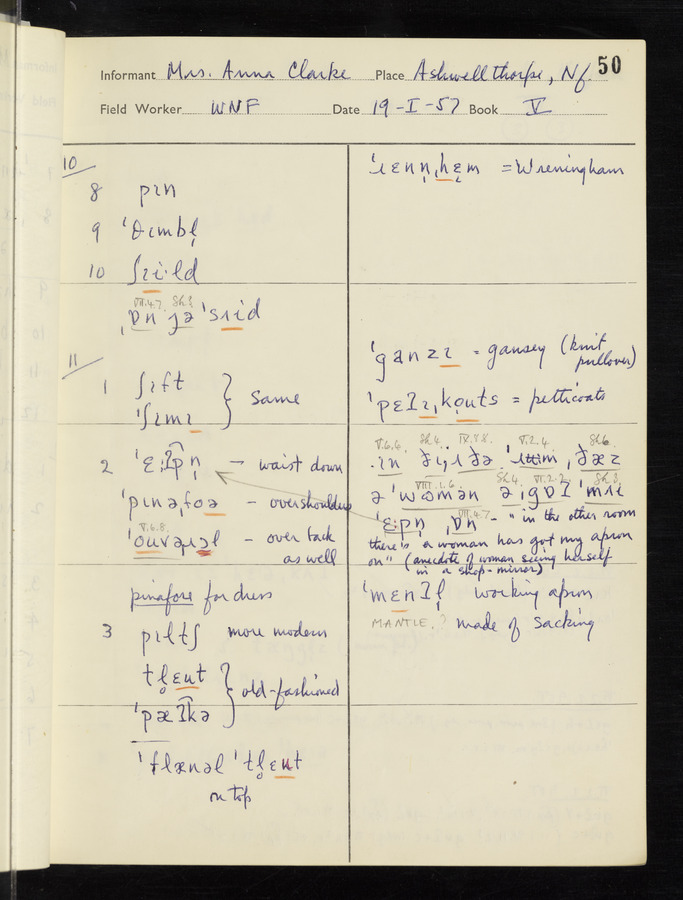 Informant Mrs. Anna Clarke Place Ashwellthorpe, Nf. 50
Field Worker WNF Date 19-I-57 Book V
10
8 pɪn
9 ˈθɪmbl̩
10 ʃɪi·ld
VII.4.7. Sh.8
ˌɒn jə ˈsɪid
11
1 ʃɪft
ˈʃɪmɪ } same
2 ˈɛːʔpn̩ – waist down
ˈpɪnəˌfoə – overshoulders
V.6.8.
ˈouvəɹəl – over back
as well
pinafore for dress
3 pɪltʃ more modern
tl̥ɛut
ˈpæʔkə } old-fashioned
ˈflænəl ˈtl̥ɛut
on top
ˈɹɛnn̩ˌhɛm = Wreningham
ˈganzɪ = gansey (knit
pullover)
ˈpɛʔɪˌkouts = petticoats
V.6.6. Sh.4. IX.8.8. V.2.4. Sh.6.
VIII.1.6. Sh.4. VI.2.2. Sh.8.
ə ˈwʊmən ə ˌgɒʔ ˈmɪi
VII.4.7.
ˈɛːpn̩ ˌɒn – "in the other room
there's a woman has got my apron
on" (anecdote of woman seeing herself
in a shop-mirror)
ˈmɛnʔl̩ working apron
MANTLE,? made of sacking